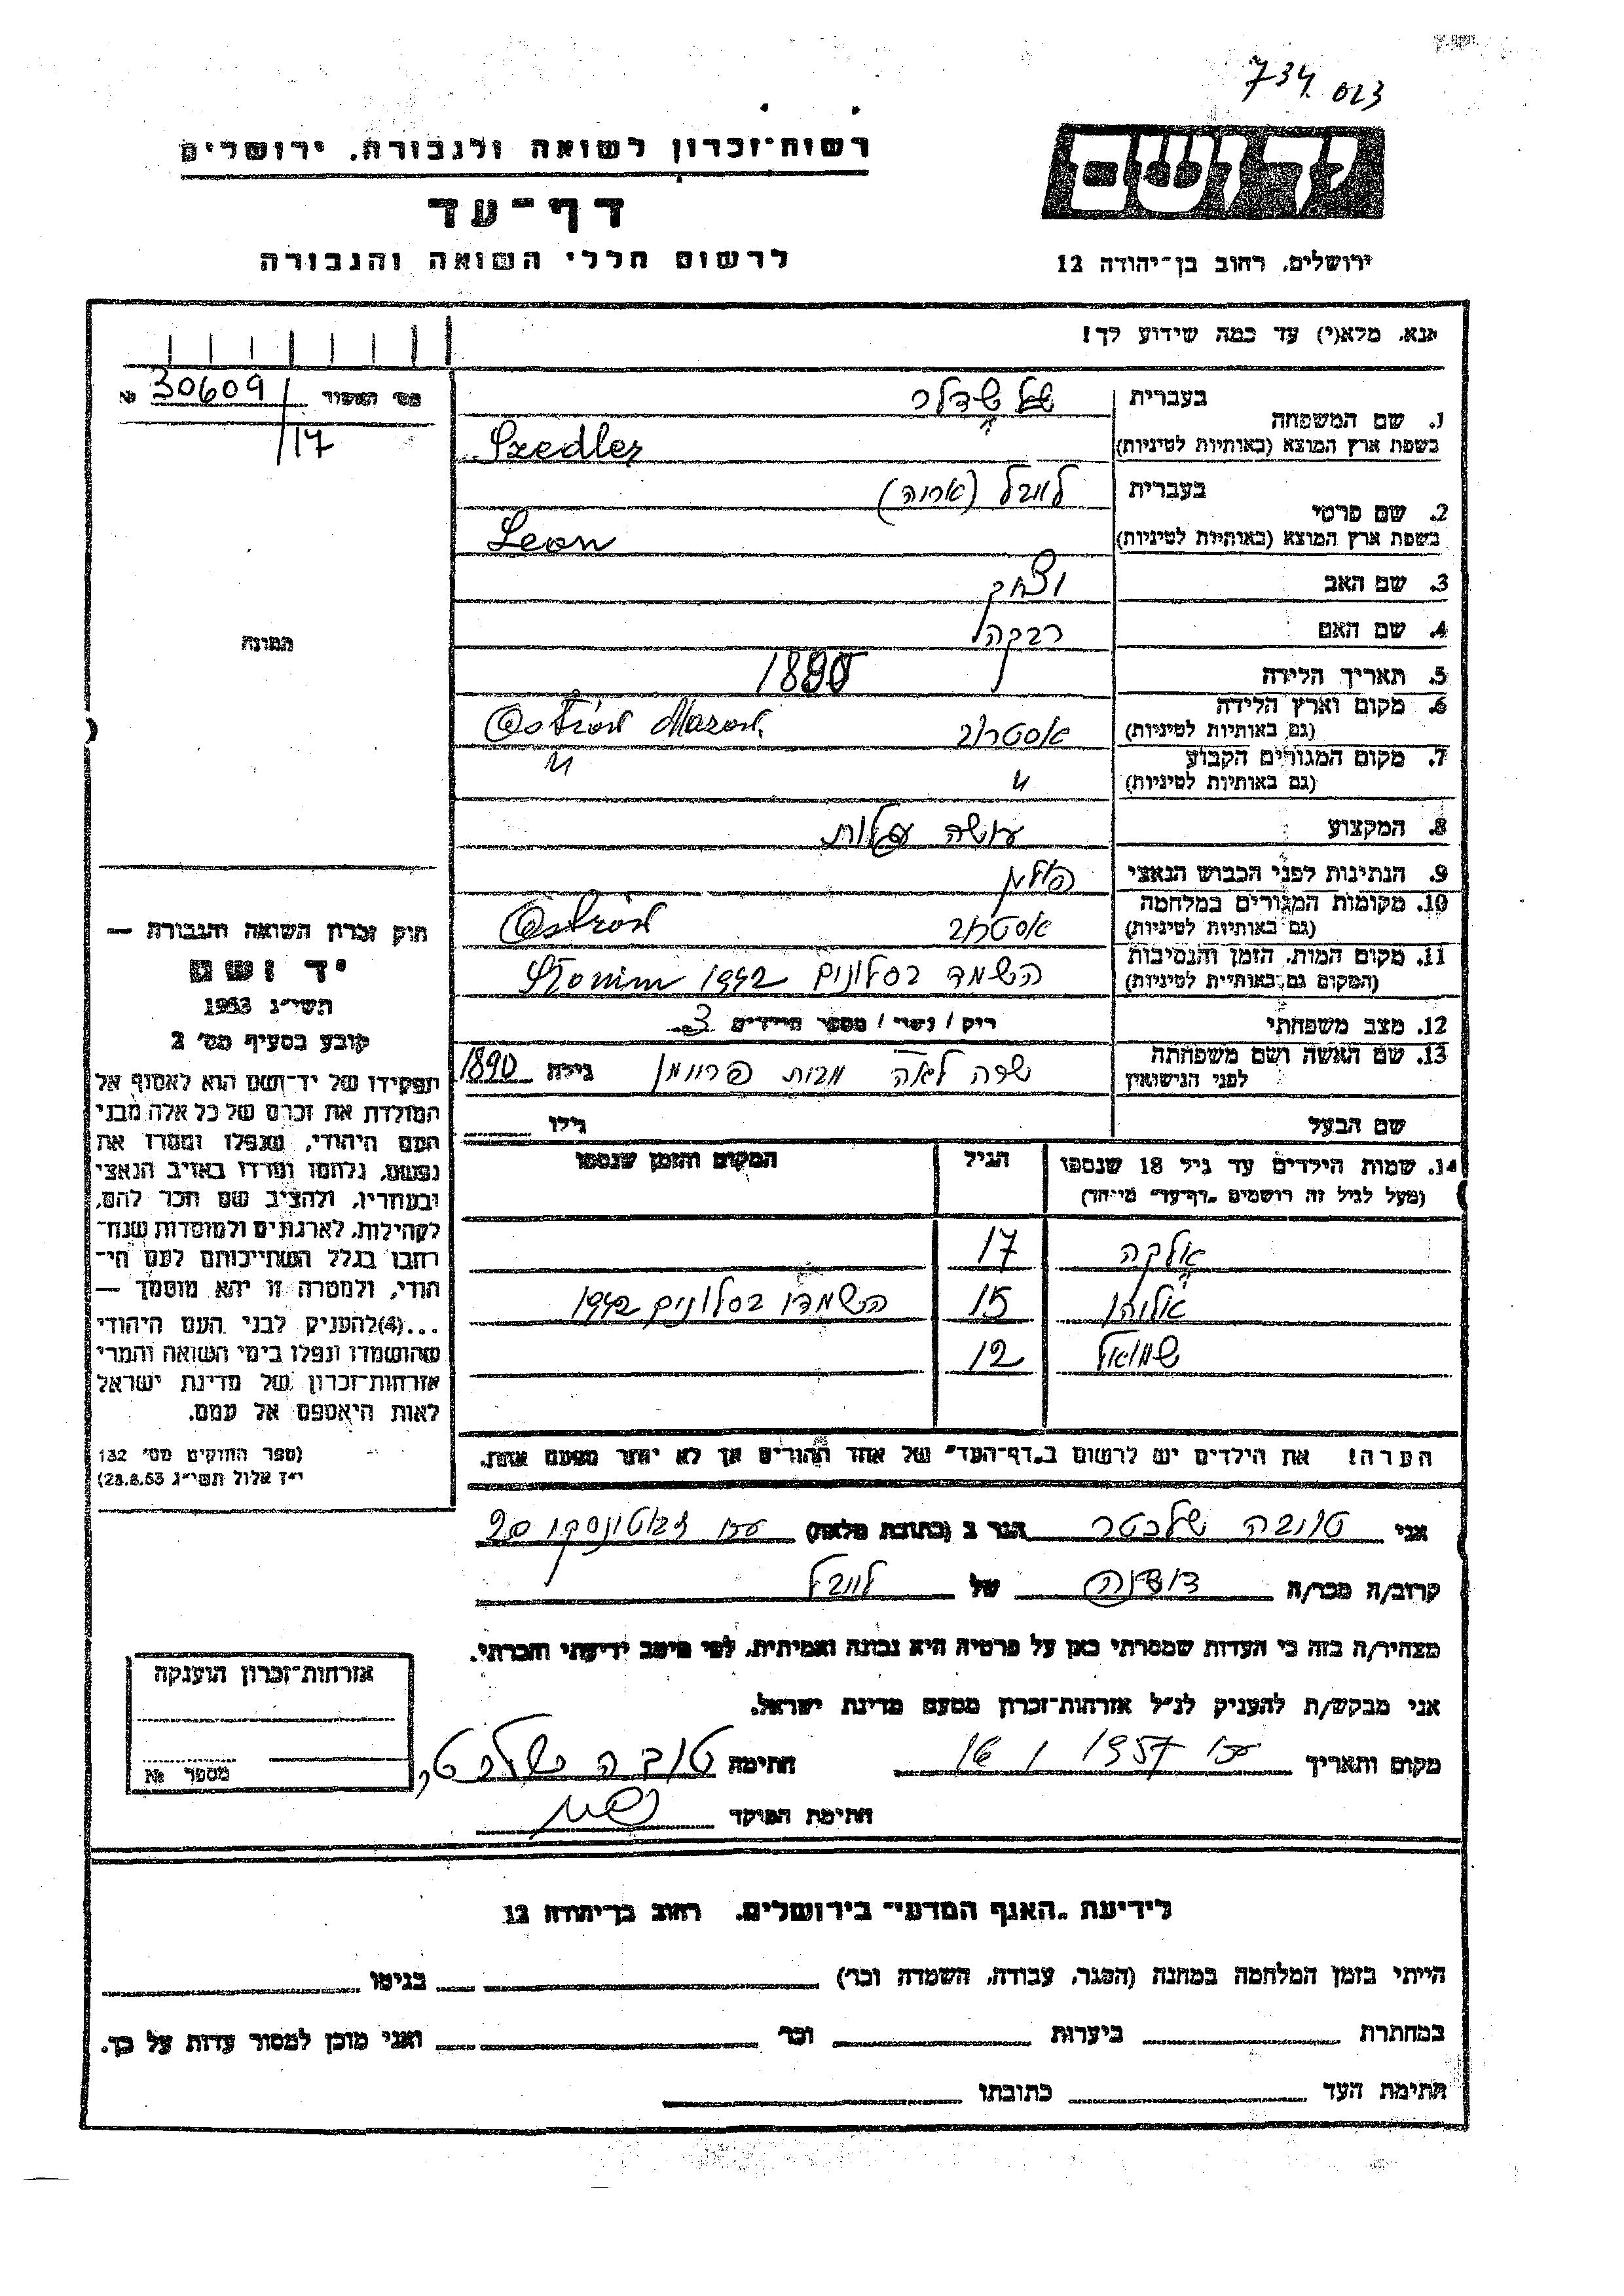 734 023
יד ושם
ירושלים, רחוב בן־יהודה 12
רשות־זכרון לשואה ולגבורה, ירושלים
דף־עד
לרשום חללי השואה והגבורה
אנא, מלא(י) עד כמה שידוע לך!
№ 30609
17
התמונה
חוק זכרון השואה והגבורה —
יד ושם
תשי״ג 1953
קובע בסעיף מס׳ 2
תפקידו של יד־ושם הוא לאסוף אל
המולדת את זכרם של כל אלה מבני
העם היהודי, שנפלו ומסרו את
נפשם, נלחמו ומרדו באויב הנאצי
ובעוזריו, ולהציב שם וזכר להם,
לקהילות, לארגונים ולמוסדות שנח־
רבו בגלל השתייכותם לעם הי־
הודי, ולמטרה זו יהא מוסמך —
...(4)להעניק לבני העם היהודי
שהושמדו ונפלו בימי השואה והמרי
אזרחות־זכרון של מדינת ישראל
לאות היאספם אל עמם.
(ספר החוקים מס׳ 132
י״ז אלול תשי״ג 28.8.53)
1. שם המשפחה
בעברית שדלר
בשפת ארץ המוצא (באותיות לטיניות) Szedler
2. שם פרטי
בעברית לייבל (אריה)
בשפת ארץ המוצא (באותיות לטיניות) Leon
3. שם האב יצחק
4. שם האם רבקה
5. תאריך הלידה 1890
6. מקום וארץ הלידה אוסטרוב Ostrów Mazow.
(גם באותיות לטיניות)
7. מקום המגורים הקבוע
(גם באותיות לטיניות) " "
8. המקצוע עושה עגלות
9. הנתינות לפני הכבוש הנאצי פולין
10. מקומות המגורים במלחמה אוסטרוב Ostrów
(גם באותיות לטיניות)
11. מקום המות, הזמן והנסיבות השמד בסלונים 1942 Słonim
(המקום גם באותיות לטיניות)
12. מצב משפחתי רוק / נשוי / מספר הילדים 3
13. שם האשה ושם משפחתה שרה לאה מבית פריימן גילה 1890
לפני הנישואין
שם הבעל גילו
14. שמות הילדים עד גיל 18 שנספו הגיל המקום והזמן שנספו
(מעל לגיל זה רושמים „דף־עד״ מיוחד)
אלקה 17
15 השמדו בסלונים 1942
שמואל 12
הערה! את הילדים יש לרשום ב„דף־העד״ של אחד ההורים אך לא יותר מפעם אחת.
אני טובה שלכטר הגר ב (כתובת מלאה) ז׳בוטינסקי 20
קרוב/ה מכר/ה דודנה של לייבל
מצהיר/ה בזה כי העדות שמסרתי כאן על פרטיה היא נכונה ואמיתית, לפי מיטב ידיעתי והכרתי.
אני מבקש/ת להעניק לנ״ל אזרחות־זכרון מטעם מדינת ישראל.
מקום ותאריך 1957 חתימה טובה שלכטר
חתימת הפוקד
אזרחות־זכרון הוענקה
מספר №
לידיעת „האגף המדעי״ בירושלים, רחוב בן־יהודה 12
הייתי בזמן המלחמה במחנה (הסגר, עבודה, השמדה וכו׳) בגיטו
במחתרת ביערות וכו׳ ואני מוכן למסור עדות על כך.
חתימת העד כתובתו